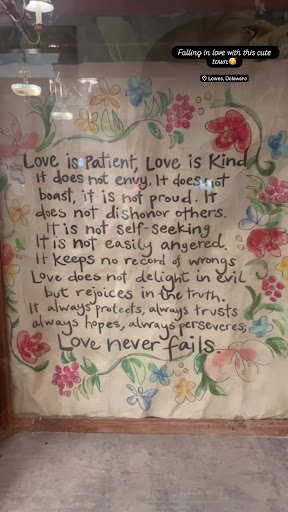 Falling in love with this cute
town🥰
Lowes, Delaware
Love is Patient, Love is Kind
It does not envy. It does not
boast, it is not proud. It
does not dishonor others.
It is not self-seeking
It is not easily angered,
It keeps no record of wrongs
Love does not delight in evil
but rejoices in the truth.
It always protects, always trusts
always hopes, always perseveres;
Love never fails.